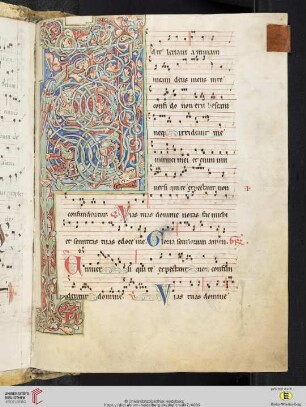 d te levavi animam
meam deus meus in te
confido non erubescam
neq; irrideant me
inimici mei et enim uni
versi qui te expectant non
confundentur Vias tuas domine notas fac michi
et semitas tuas edoce me Gloria seculorum amen
Universi qui te expectant non confun
dentur domine Vias tuas domine
UNIVERSITÄTS-
BIBLIOTHEK
HEIDELBERG
© Universitätsbibliothek Heidelberg
Baden-Württemberg